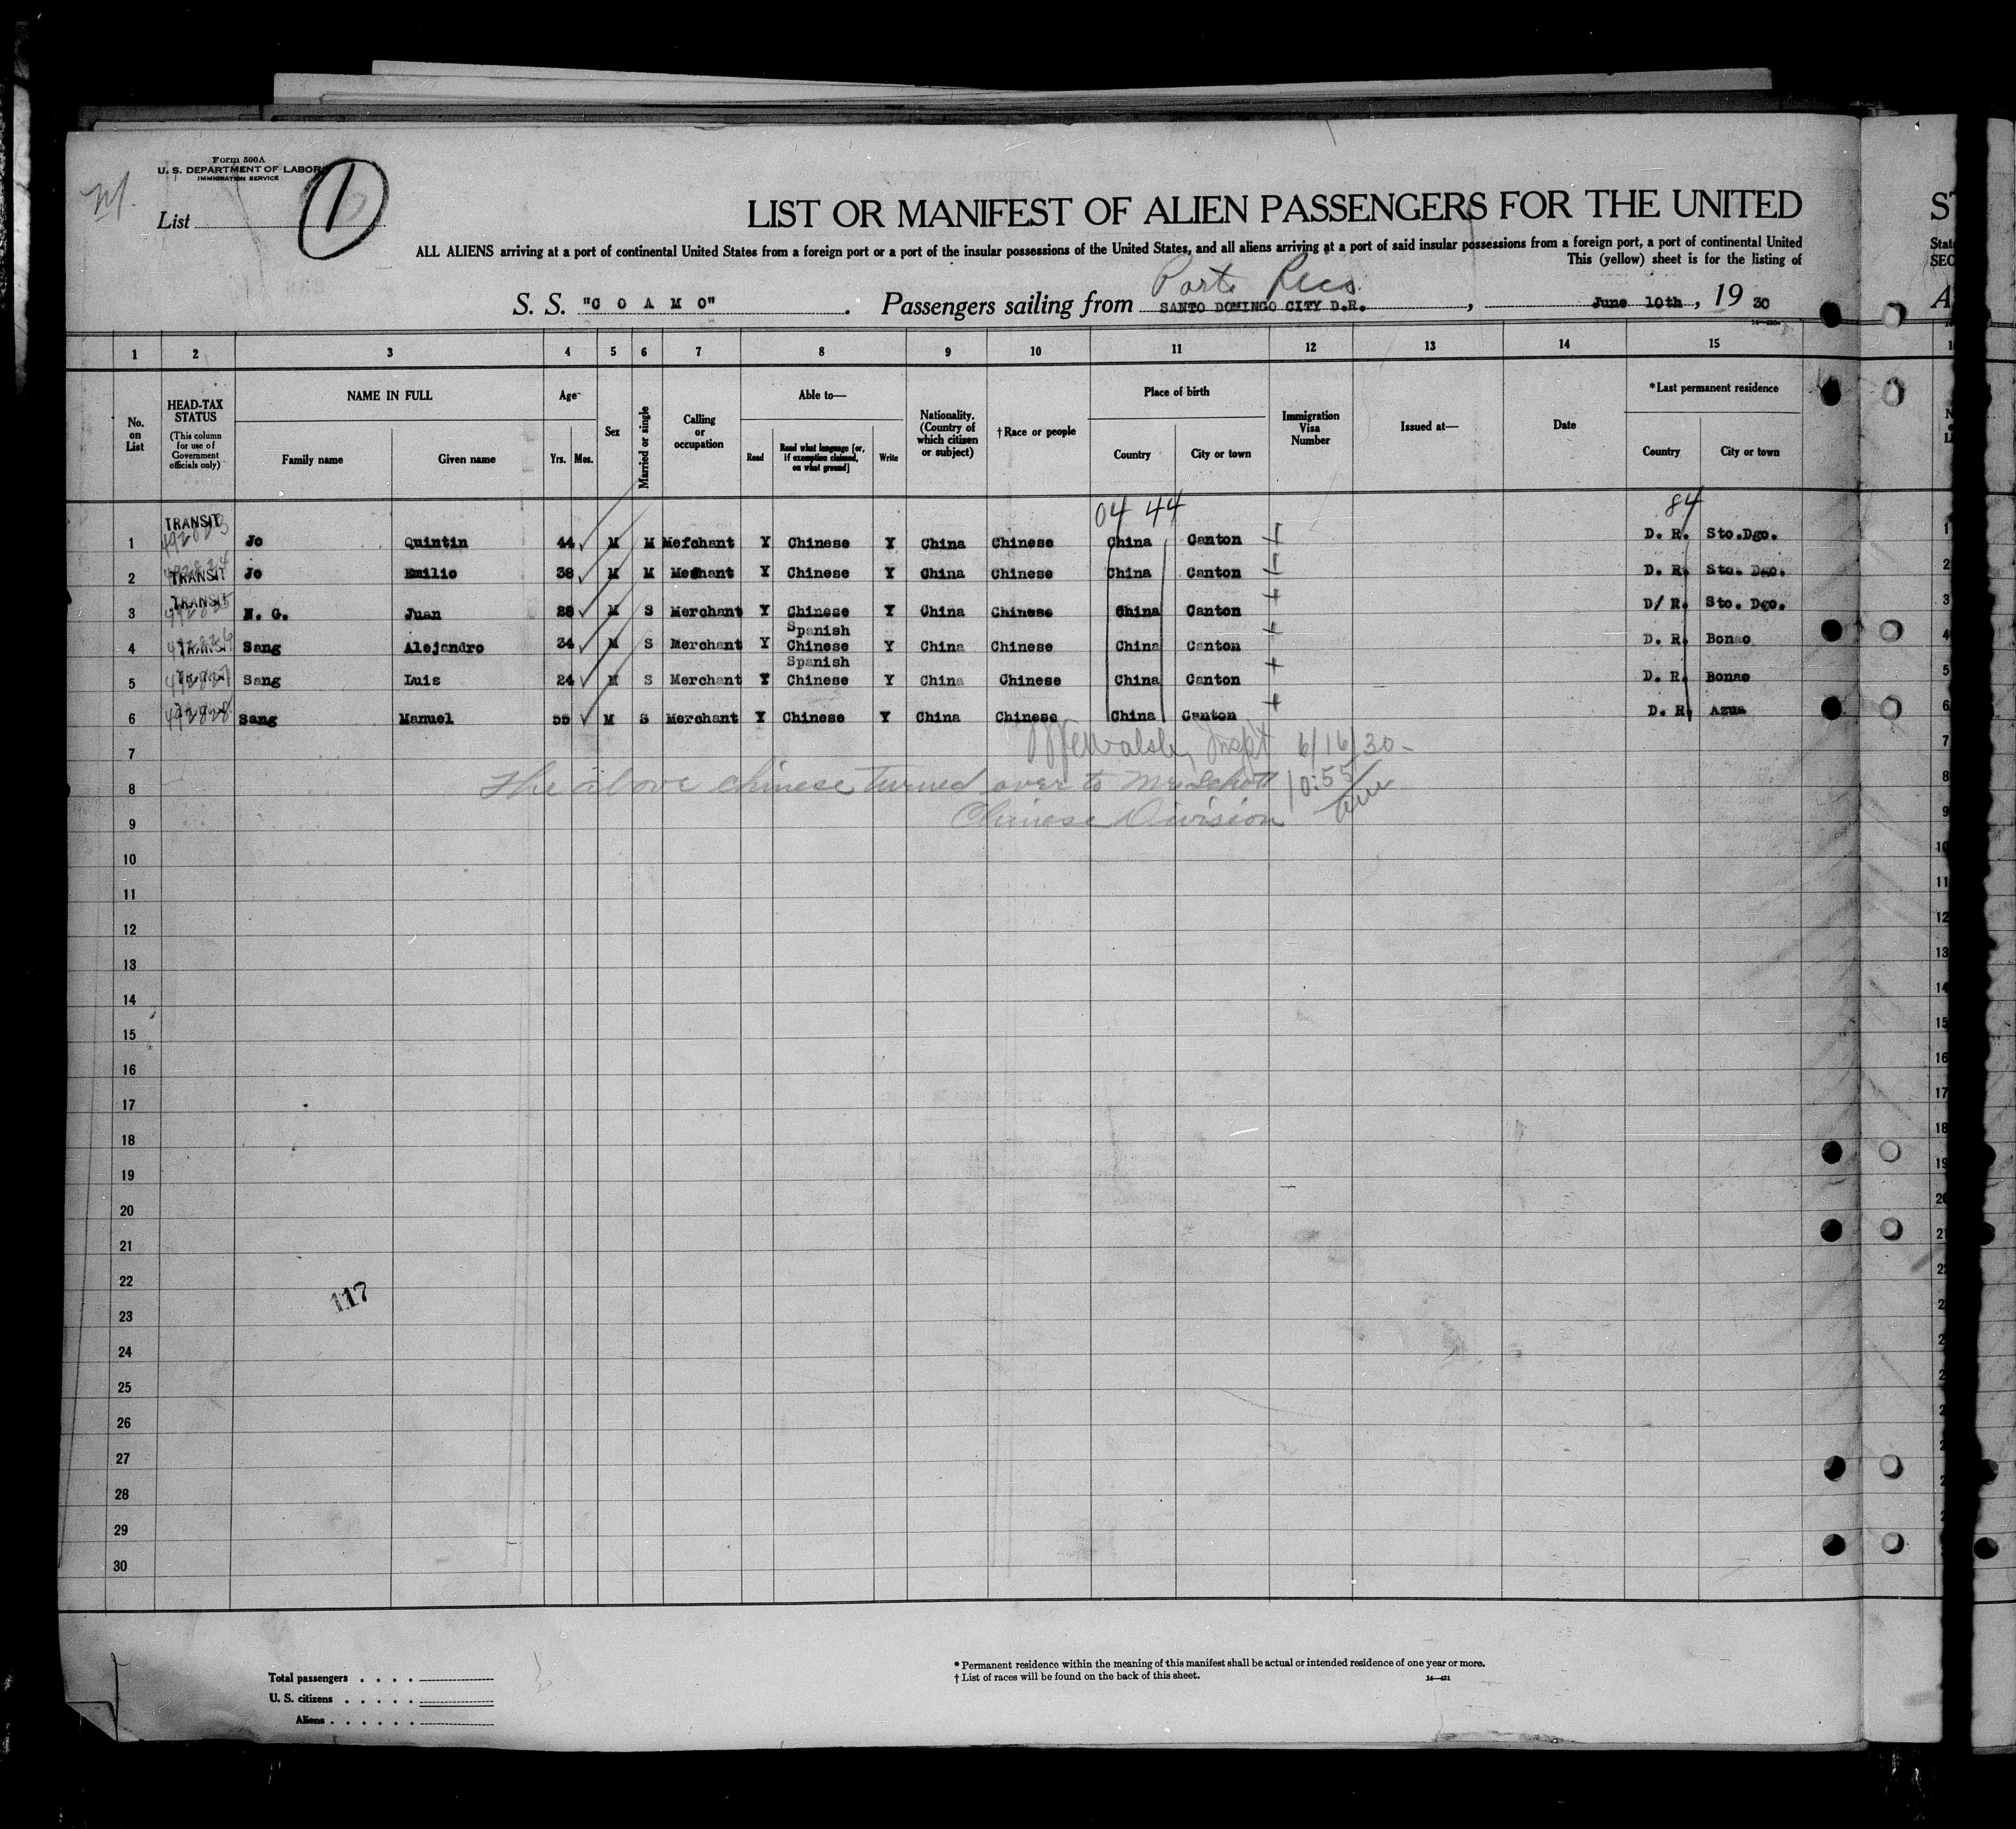 Form 500A
U. S. DEPARTMENT OF LABOR
IMMIGRATION SERVICE
List 1
LIST OR MANIFEST OF ALIEN PASSENGERS FOR THE UNITED
ALL ALIENS arriving at a port of continental United States from a foreign port or a port of the insular possessions of the United States, and all aliens arriving at a port of said insular possessions from a foreign port, a port of continental United
This (yellow) sheet is for the listing of
Porto Rico
S. S. "C O A M O". Passengers sailing from SANTO DOMINGO CITY D.R., June 10th, 19 30
1 2 3 4 5 6 7 8 9 10 11 12 13 14 15
No. on List
HEAD-TAX STATUS (This column for use of Government officials only)
NAME IN FULL
Family name Given name
Age Yrs. Mos.
Sex
Married or single
Calling or occupation
Able to— Read Read what language [or, if exemption claimed, on what ground] Write
Nationality. (Country of which citizen or subject)
†Race or people
Place of birth Country City or town
Immigration Visa Number
Issued at—
Date
*Last permanent residence Country City or town
04 44 84
1 TRANSIT 492823 Jo Quintin 44 M M Merchant Y Chinese Y China Chinese China Canton D. R. Sto.Dgo.
2 492824 TRANSIT Jo Emilio 38 M M Mechant Y Chinese Y China Chinese China Canton D. R. Sto. Dgo.
3 TRANSIT 492825 N. G. Juan 28 M S Merchant Y Chinese Y China Chinese China Canton D/ R. Sto. Dgo.
Spanish
4 492826 TRANSIT Sang Alejandro 34 M S Merchant Y Chinese Y China Chinese China Canton D. R. Bonao
Spanish
5 492827 Sang Luis 24 M S Merchant Y Chinese Y China Chinese China Canton D. R. Bonao
6 492828 Sang Manuel 55 M S Merchant Y Chinese Y China Chinese China Canton D. R. Azua
7 Walsh, Inspt 6/16/30-
8 The above Chinese turned over to Mr Schott 10:55 am
9 Chinese Division
10
11
12
13
14
15
16
17
18
19
20
21
22
117
23
24
25
26
27
28
29
30
Total passengers
U. S. citizens
Aliens
* Permanent residence within the meaning of this manifest shall be actual or intended residence of one year or more.
† List of races will be found on the back of this sheet.
14—431